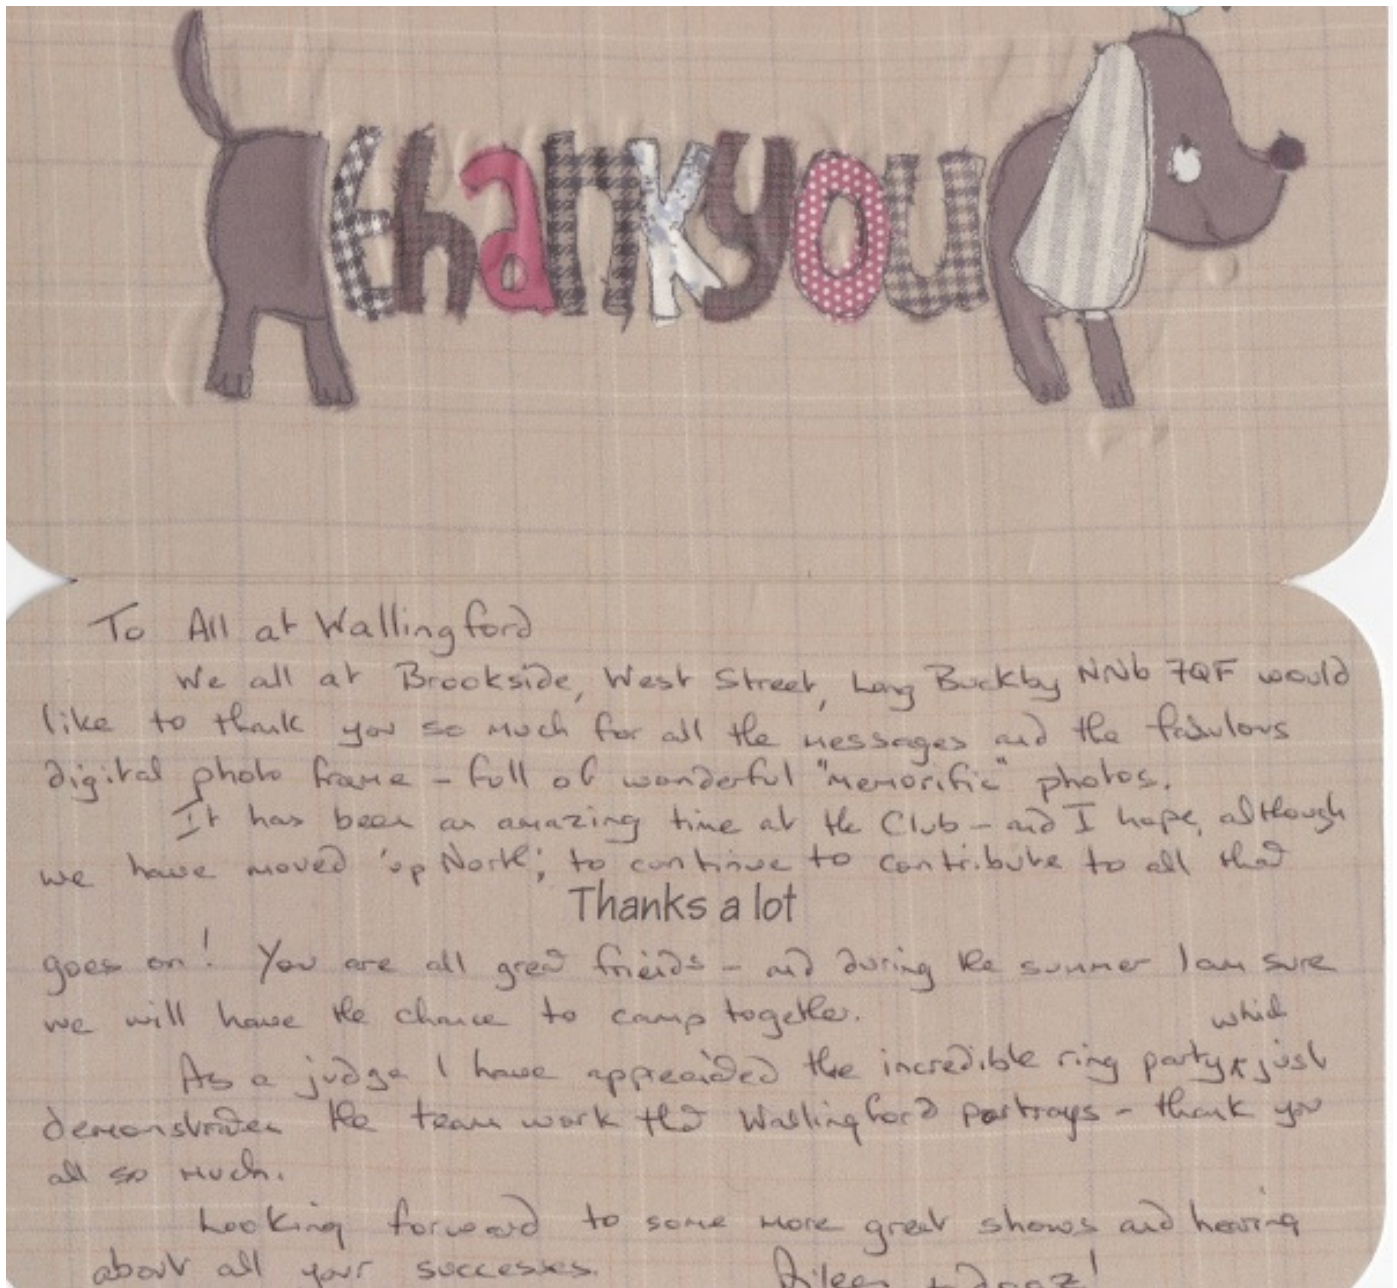 thankyou
To All at Wallingford
We all at Brookside, West Street, Long Buckby NN6 7QF would
like to thank you so much for all the messages and the fabulous
digital photo frame - full of wonderful "memorific" photos.
It has been an amazing time at the Club - and I hope, although
we have moved 'up North', to continue to contribute to all that
Thanks a lot
goes on! You are all great friends - and during the summer I am sure
we will have the chance to camp together.
which
As a judge I have appreciated the incredible ring party ⁁ just
demonstrates the team work that Wallingford portrays - thank you
all so much.
Looking forward to some more great shows and hearing
about all your successes. Aileen